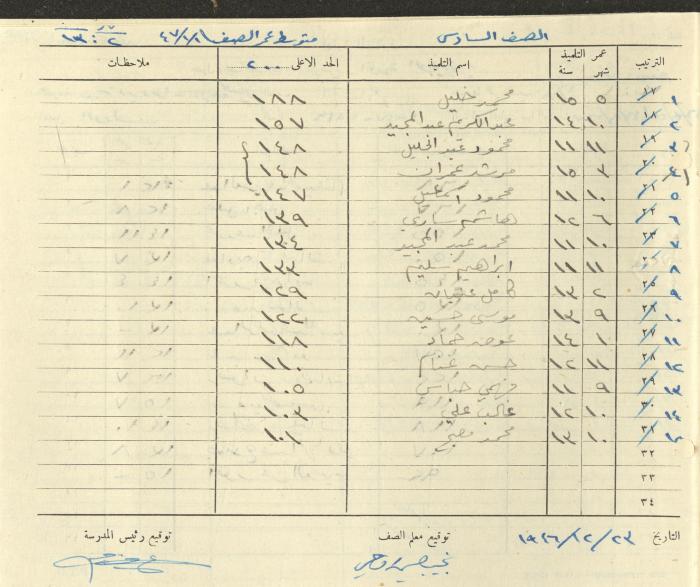 الصف السادس متوسط عمر الصف ٤٧/١/١ ١٣:٢
الترتيب عمر التلميذ شهر سنة اسم التلميذ الحد الاعلى ٢٠٠ ملاحظات
١٧ ١ ٥ ١٥ محمد خليل ١٨٨
١٨ ٢ ١٠ ١٤ عبد الكريم عبد المجيد ١٥٧
١٩ ٣ ١١ ١١ محمود عبد الجليل ١٤٨
٢٠ ٤ ٣ ١٥ مرشد عمران ١٤٨
٢١ ٥ ١٠ ١١ محمود اسماعيل ١٤٧
٢٢ ٦ ٦ ١٢ هاشم ١٣٩
٢٣ ٧ ١٠ ١١ محمد عبد المجيد ١٣٤
٨ ١١ ١١ ابراهيم سليم ١٣٣
٢٥ ٩ ٢ ١٣ كامل عثمان ١٢٩
٢٦ ١٠ ٩ ١٣ موسى حسين ١٢٢
٢٧ ١١ ١ ١٤ عوض حماد ١١٨
٢٨ ١٢ ١١ ١٢ حسن غنام ١١٠
٢٩ ١٣ ٩ ١١ ١٠٥
٣٠ ١٤ ١٠ ١٢ غالب علي ١٠٣
٣١ ١٥ ١٠ ١٣ محمد مصلح ١٠١
٣٢
٣٣
٣٤
التاريخ ١٩٤٦/١٢/٢٣ توقيع معلم الصف توقيع رئيس المدرسة